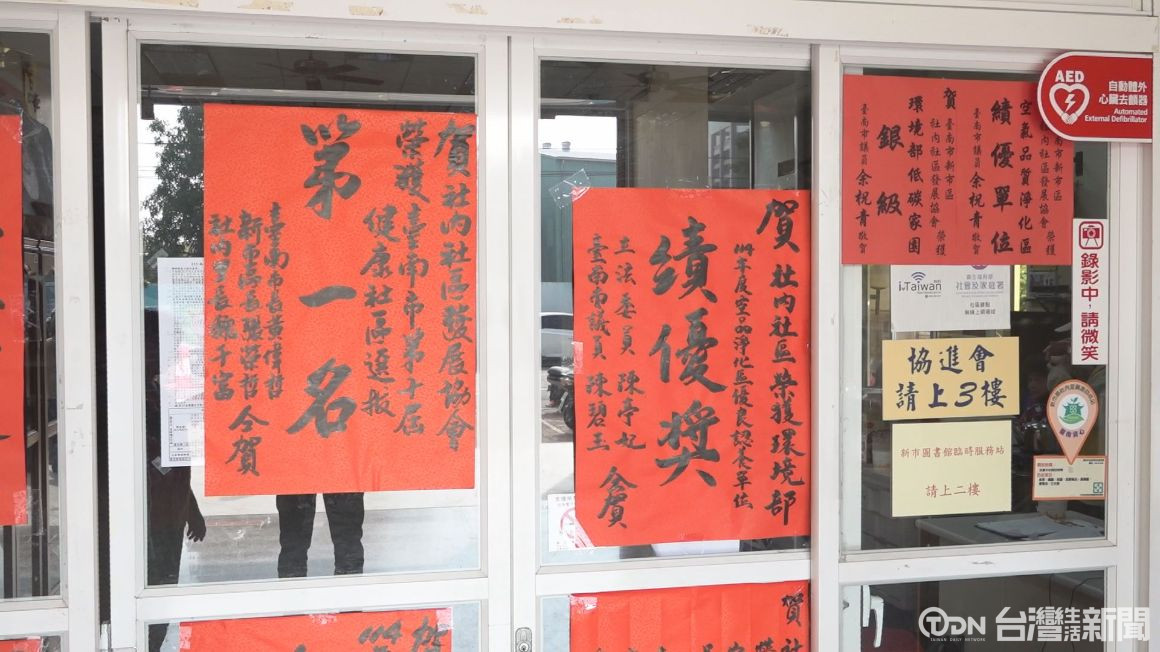 賀社內社區發展協會
榮獲臺南市第十屆
健康社區選拔
第一名
臺南市長黃偉哲
新市區長張榮哲
社內里長魏千富 仝賀
賀 社內社區榮獲環境部
114年度空品淨化區優良認養單位
績優獎
立法委員 陳亭妃
臺南市議員 陳碧玉 仝賀
社內社區發展協會 榮獲
空氣品質淨化區
績優單位
臺南市議員余祝青 敬賀
賀
臺南市新市區
社內社區發展協會 榮獲
環境部低碳家園
銀級
臺南市議員余祝青 敬賀
AED
自動體外
心臟去顫器
Automated
External Defibrillator
錄影中，請微笑
iTaiwan
衛生福利部
社會及家庭署
協進會
請上3樓
新市圖書館臨時服務站
請上二樓
賀
114
TDN 台灣生活新聞
TAIWAN DAILY NETWORK